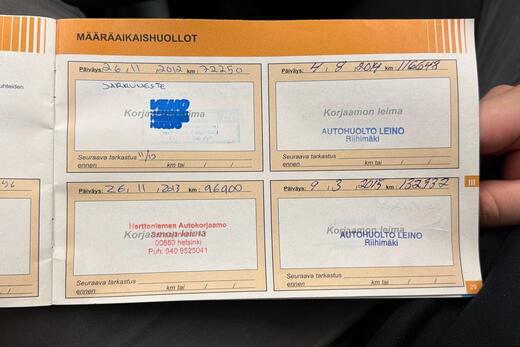 MÄÄRÄAIKAISHUOLLOT
Päiväys: 26, 11 2012 km: 72250
JARRUNESTE
Korjaamon leima
Seuraava tarkastus 11/13
ennen / / km tai / /
Päiväys: 4, 8 2014 km: 116648
Korjaamon leima
AUTOHUOLTO LEINO
Riihimäki
Seuraava tarkastus
ennen / / km tai / /
Päiväys: 26, 11, 2013 km: 96900
Korjaamon leima
Herttoniemen Autokorjaamo
00880 helsinki
Puh: 040 9525041
Seuraava tarkastus
ennen km tai / /
Päiväys: 9, 3 2015 km: 132332
Korjaamon leima
AUTOHUOLTO LEINO
Riihimäki
Seuraava tarkastus
ennen km tai / /
III
25